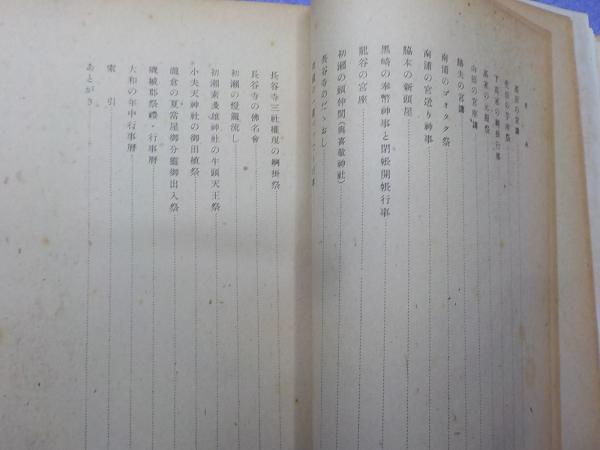 目次
南浦のゴイタタ祭
南浦の宮送り神事
脇本の新頭屋
黒崎の奉幣神事と閉帳開帳行事
龍谷の宮座
初瀬の頭仲間(與喜敬神社)
長谷寺のだゝおし
長谷寺三社權現の綱掛祭
長谷寺の佛名會
初瀬の燈籠流し
初瀬素盞雄神社の牛頭天王祭
小夫天神社の御田植祭
瀧倉の夏當屋御分靈御出入祭
磯城郡祭禮・行事暦
大和の年中行事暦
索引
あとがき